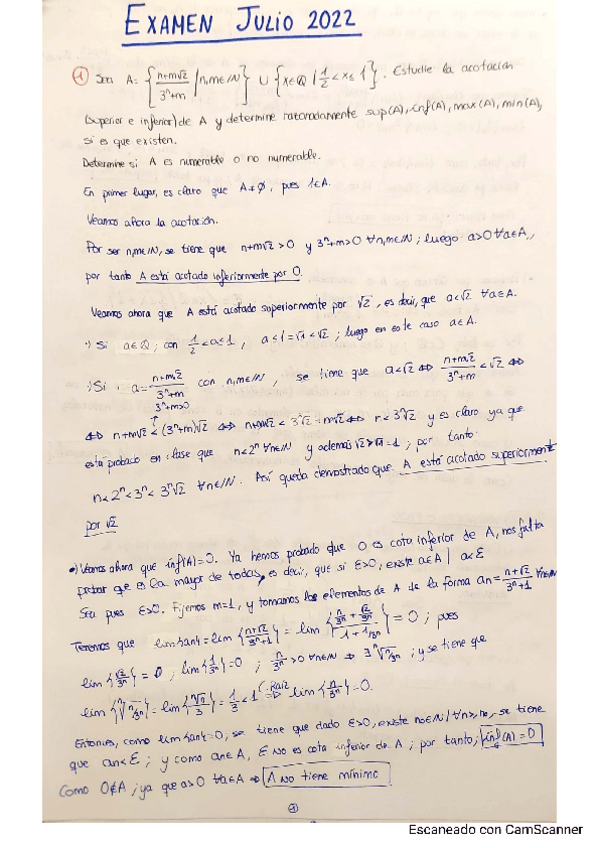 EXAMEN JULIO 2022
① Sea A = { (n+m√2)/(3ⁿ+m) | n,m∈ℕ } ∪ { x∈ℚ | 1/2 < x ≤ 1 }. Estudie la acotación
(superior e inferior) de A y determine razonadamente sup(A), inf(A), max(A), min(A),
si es que existen.
Determine si A es numerable o no numerable.
En primer lugar, es claro que A≠∅, pues 1∈A.
Veamos ahora la acotación.
Por ser n,m∈ℕ, se tiene que n+m√2 > 0 y 3ⁿ+m > 0 ∀n,m∈ℕ; luego a>0 ∀a∈A,
por tanto A está acotado inferiormente por 0.
Veamos ahora que A está acotado superiormente por √2, es decir, que a<√2 ∀a∈A.
·) Si a∈ℚ, con 1/2 < a ≤ 1, a ≤ 1 = √1 < √2; luego en este caso a∈A.
·) Si a = (n+m√2)/(3ⁿ+m) con n,m∈ℕ, se tiene que a<√2 ⇔ (n+m√2)/(3ⁿ+m) < √2 ⇔
3ⁿ+m>0
⇔ n+m√2 < (3ⁿ+m)√2 ⇔ n+m√2 < 3ⁿ√2 + m√2 ⇔ n < 3ⁿ√2 y es claro ya que
está probado en clase que n<2ⁿ ∀n∈ℕ y además √2>√1=1; por tanto:
n<2ⁿ<3ⁿ<3ⁿ√2 ∀n∈ℕ. Así queda demostrado que A está acotado superiormente
por √2
•) Veamos ahora que inf(A)=0. Ya hemos probado que 0 es cota inferior de A, nos falta
probar que es la mayor de todas, es decir, que si ε>0, existe a∈A | a<ε
Sea pues ε>0. Fijemos m=1, y tomamos los elementos de A de la forma an = (n+√2)/(3ⁿ+1) ∀n∈ℕ
Tenemos que lim{an} = lim{(n+√2)/(3ⁿ+1)} = lim{(n/3ⁿ + √2/3ⁿ)/(1+1/3ⁿ)} = 0; pues
lim{√2/3ⁿ} = 0; lim{1/3ⁿ} = 0; n/3ⁿ > 0 ∀n∈ℕ ⇒ ∃ ⁿ√(n/3ⁿ); y se tiene que
lim{ⁿ√(n/3ⁿ)} = lim{ⁿ√n/3} = 1/3 < 1 ⇒ (C. Raíz) lim{n/3ⁿ} = 0.
Entonces, como lim{an}=0, se tiene que dado ε>0, existe n₀∈ℕ | ∀n≥n₀, se tiene
que an<ε; y como an∈A, ε no es cota inferior de A; por tanto; inf(A)=0
Como 0∉A; ya que a>0 ∀a∈A ⇒ A no tiene mínimo
①
Escaneado con CamScanner